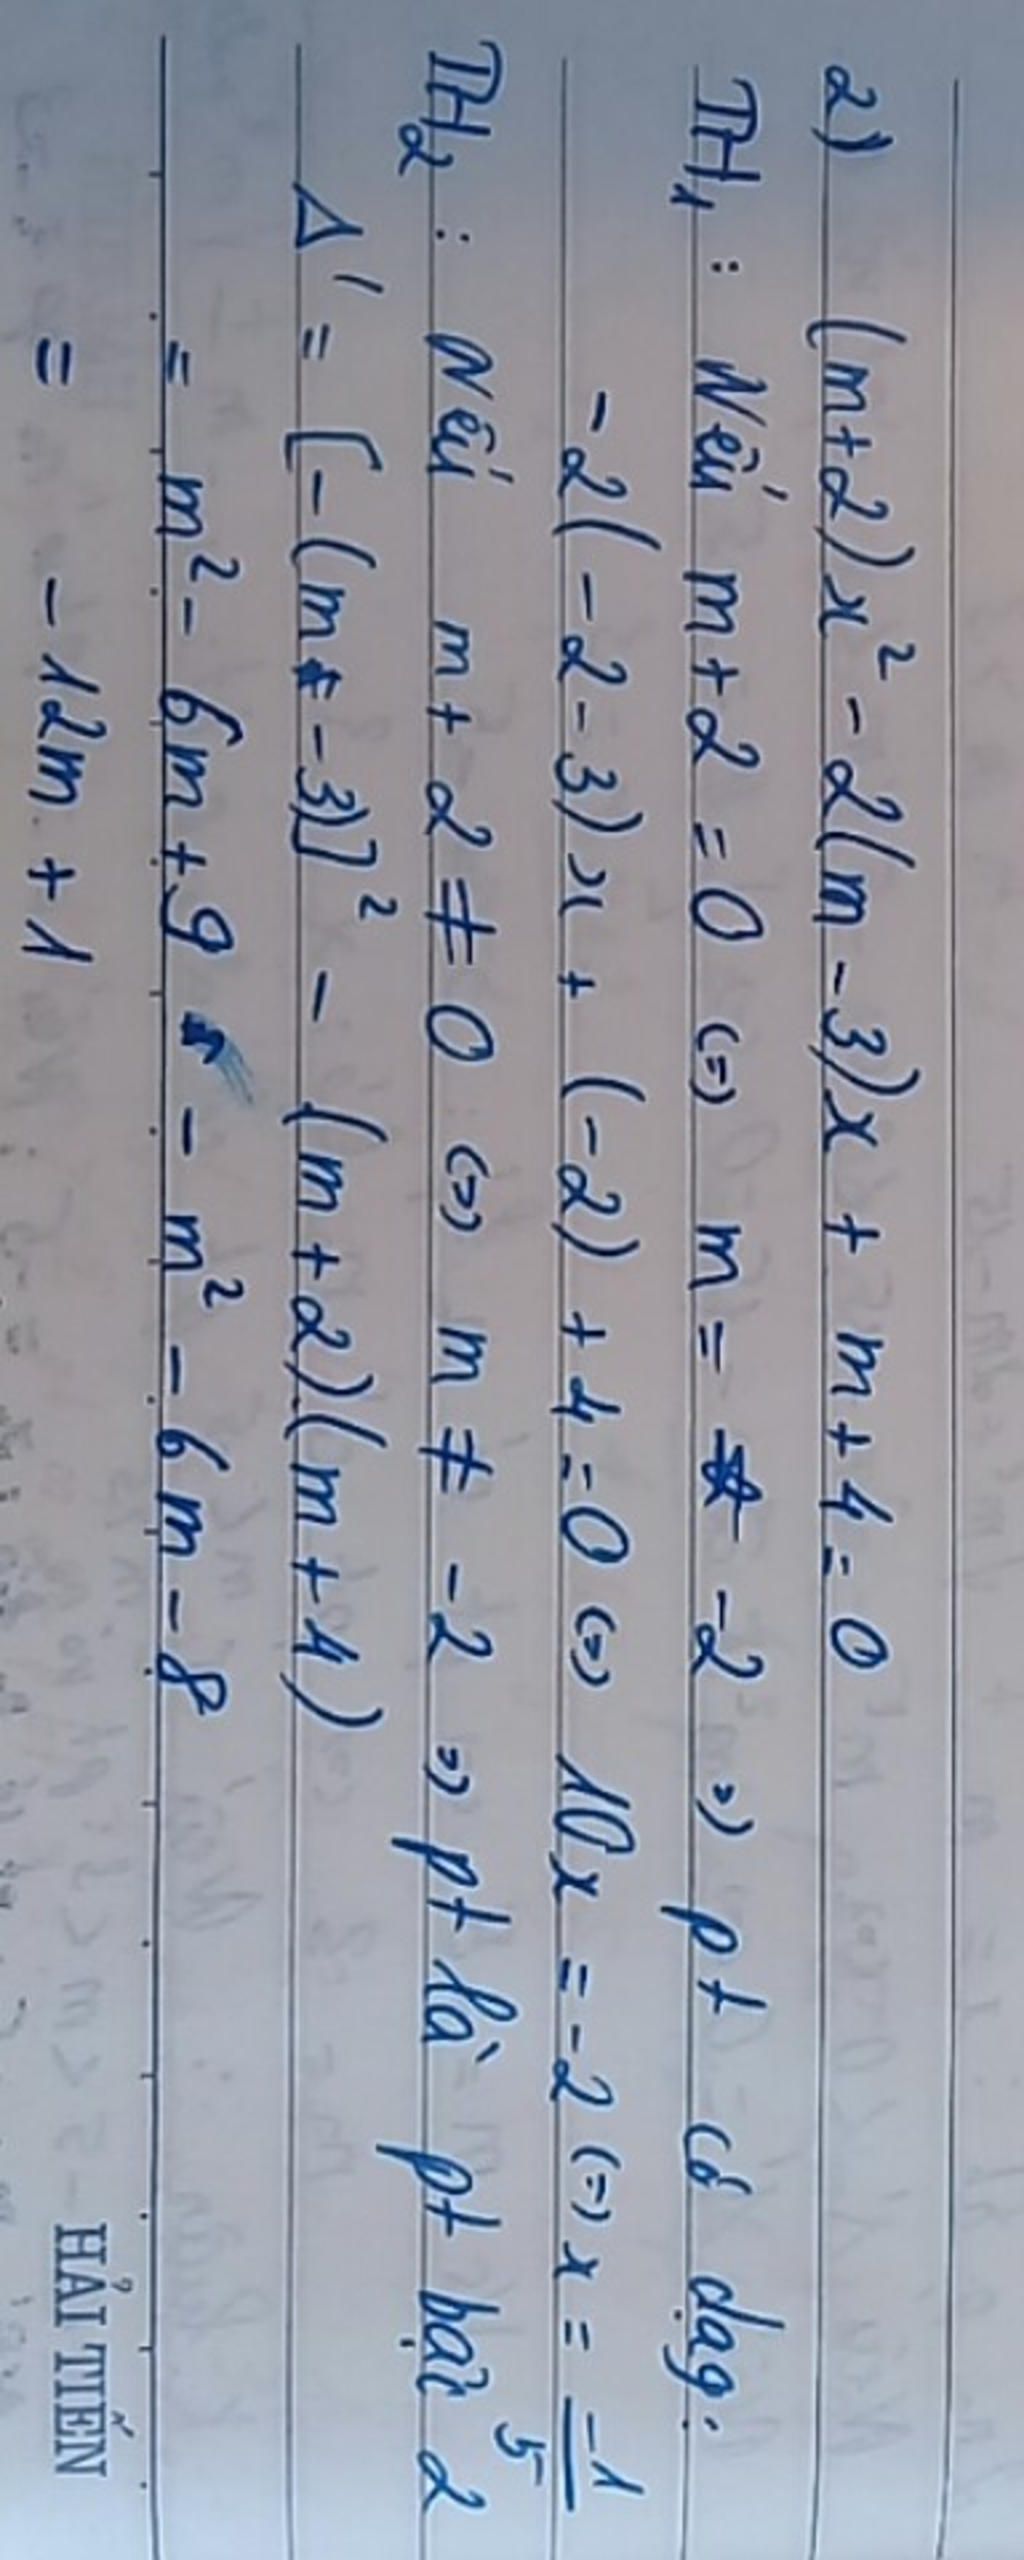 2) (m+2)x² - 2(m-3)x + m+4 = 0
TH₁ : Nếu m+2 = 0 (=) m = -2 =) pt có dạg :
-2(-2-3)x + (-2) + 4 = 0 (=) 10x = -2 (=) x = -1/5
TH₂ : Nếu m+2 ≠ 0 (=) m ≠ -2 =) pt là pt bậc 2
Δ' = [-(m-3)]² - (m+2)(m+4)
= m² - 6m + 9 - m² - 6m - 8
= -12m + 1
HẢI TIẾN